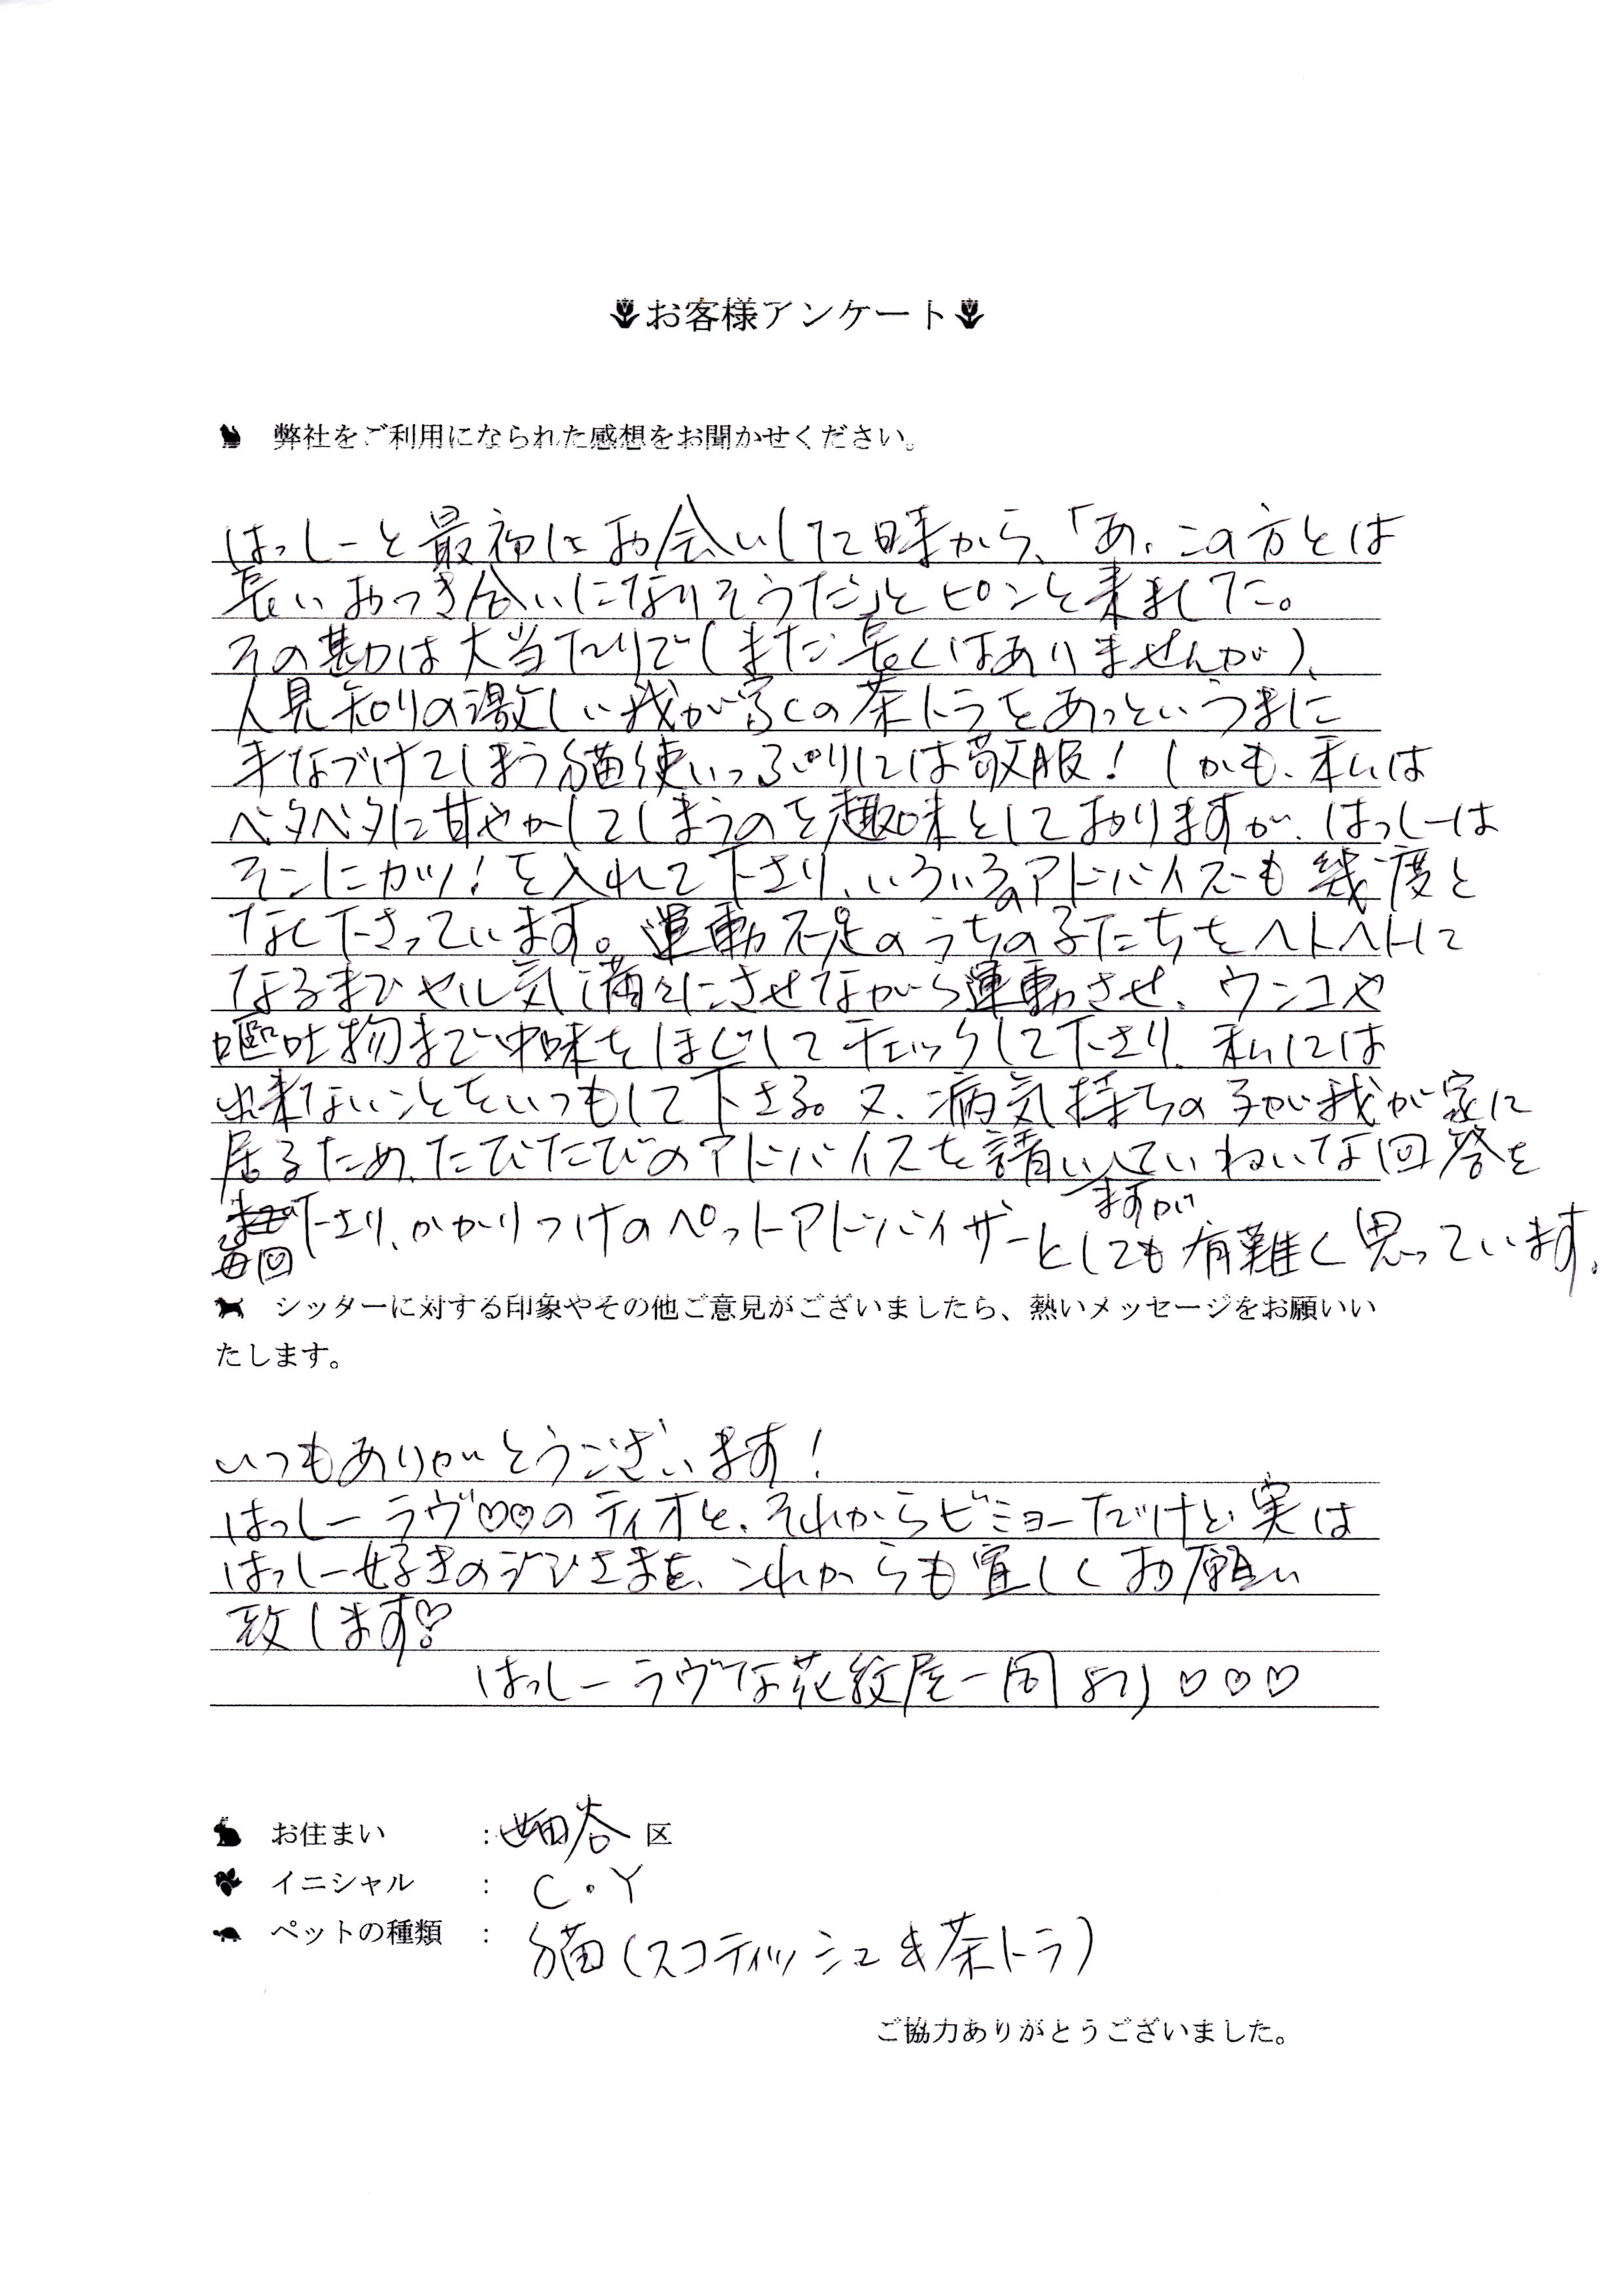 お客様アンケート
弊社をご利用になられた感想をお聞かせください。
はっしーと最初にお会いした時から、「あ、この方とは
長いおつき合いになりそうだ」とピンと来ました。
その勘は大当たりで(まだ長くはありませんが)、
人見知りの激しい我が家の茶トラをあっというまに
手なづけてしまう猫使いっぷりには敬服! しかも、私は
ベタベタに甘やかしてしまうのを趣味としておりますが、はっしーは
そこにカツ!を入れて下さり、いろいろのアドバイスも幾度と
なく下さっています。運動不足のうちの子たちをヘトヘトに
なるまでヤル気満々にさせながら運動させ、ウンコや
嘔吐物まで中味をほじしてチェックして下さり、私には
出来ないことをいつもして下さる。又、病気持ちの子が我が家に
居るため、たびたびのアドバイスを請いますがていねいな回答を
毎回下さり、かかりつけのペットアドバイザーとしても有難く思っています。
シッターに対する印象やその他ご意見がございましたら、熱いメッセージをお願いい
たします。
いつもありがとうございます!
はっしーラヴ♡♡のティオと、それからビミョーだけど実は
はっしー好きのジジさまを、これからも宜しくお願い
致します♡
はっしーラヴな花紋屋一同より♡♡♡
お住まい : 世田谷区
イニシャル : C・Y
ペットの種類 : 猫(スコティッシュ&茶トラ)
ご協力ありがとうございました。